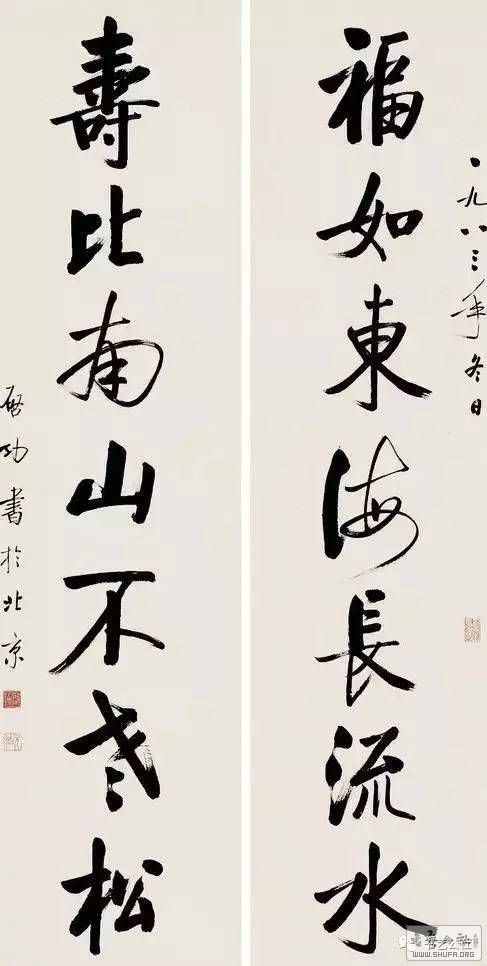 一九八三年冬日
福如東海長流水
壽比南山不老松
启功書於北京
WWW.SHUFA.ORG